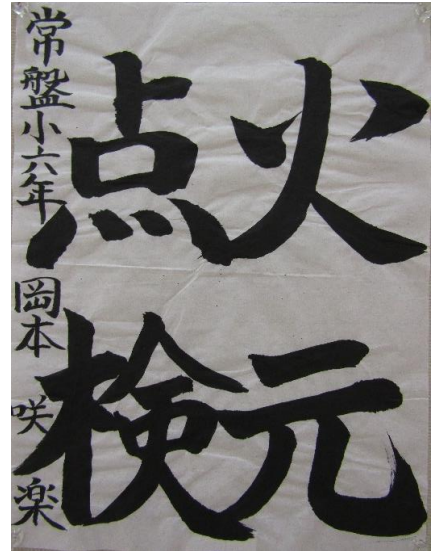 火元
点検
常盤小六年 岡本咲楽